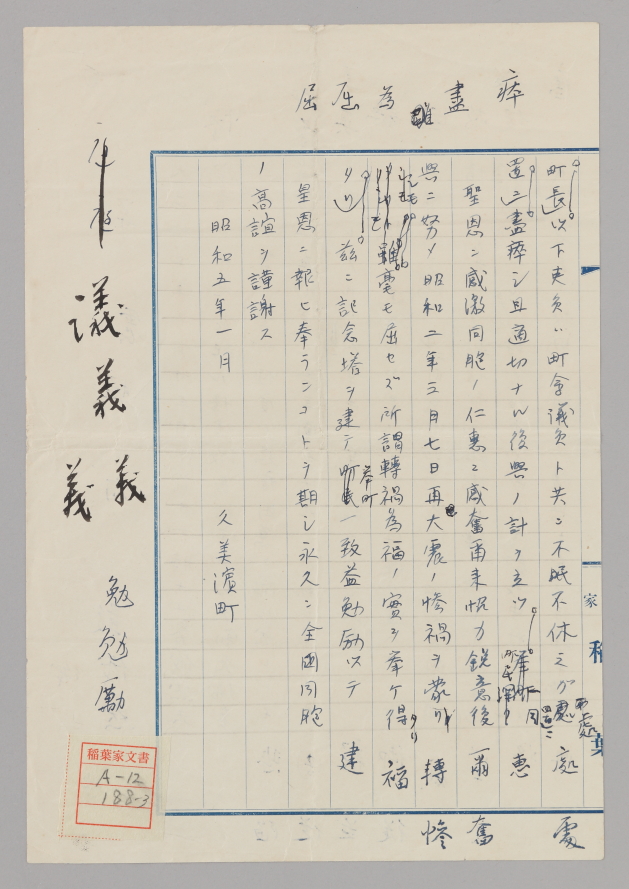 瘁 盡 雖 為 屈 屈
町長以下吏員ハ町會議員ト共ニ不眠不休之ガ應處
置ニ盡瘁シ且適切ナル後興ノ計ヲ立ツ
聖恩ニ感激同胞ノ仁惠ニ感奮爾来怩力鋭意後
興ニ努メ昭和二年三月七日再大震ノ惨禍ヲ蒙リ
雖毫モ屈セズ所謂轉禍為福ノ實ヲ挙ケ得タリ
茲ニ記念塔ヲ建テ町民挙町一致益勉励以テ
皇恩ニ報ヒ奉ランコトヲ期シ永久ニ全国同胞
ノ高誼ヲ謹謝ス
昭和五年一月
久美濱町
處 處
惠
爾 奮
轉 惨
福
建
議 義 義 義
勉 勉 勵
家
稲
葉
稲葉家文書
A-12
188-3